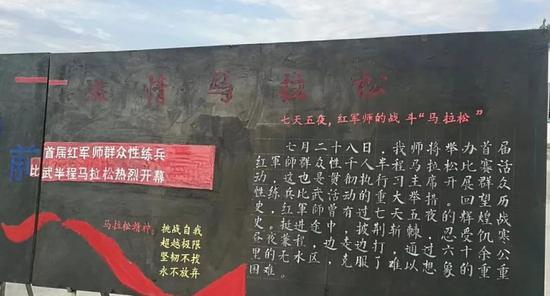 激情马拉松
七天五夜，红军师的战斗“马拉松”
前
首届红军师群众性练兵
比武半程马拉松热烈开幕
马拉松精神：
挑战自我
超越极限
坚韧不拔
永不放弃
七月二十八日，我师将举办首届
红军师群众性千人半程马拉松比赛活
动，这也是贯彻执行习主席开展群众
性练兵比武活动的重大举措。回望历
史，红军师曾有过七天五夜的辉煌战
史。挺进途中，披荆斩棘，忍受饥寒
昼夜兼程，边走边打，通过六十余公
里的无水区，克服了难以想象的重重
困难。